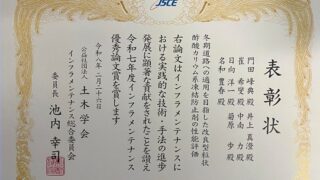 JSCE
表彰状
門田峰典殿 井上真澄殿
崔希燮殿 中南 力殿
日向洋一殿 菊原 歩殿
名和豊春殿
冬期道路への適用を目指した改良型粒状
酢酸カリウム系凍結防止剤の性能評価
右論文はインフラメンテナンスに
おける実践的な技術・手法の進歩
発展に顕著な貢献をされたことを讃え
令和七年度インフラメンテナンス
優秀論文賞を賞します
令和八年二月二十六日
公益社団法人 土木学会
インフラメンテナンス総合委員会
委員長 池内幸司